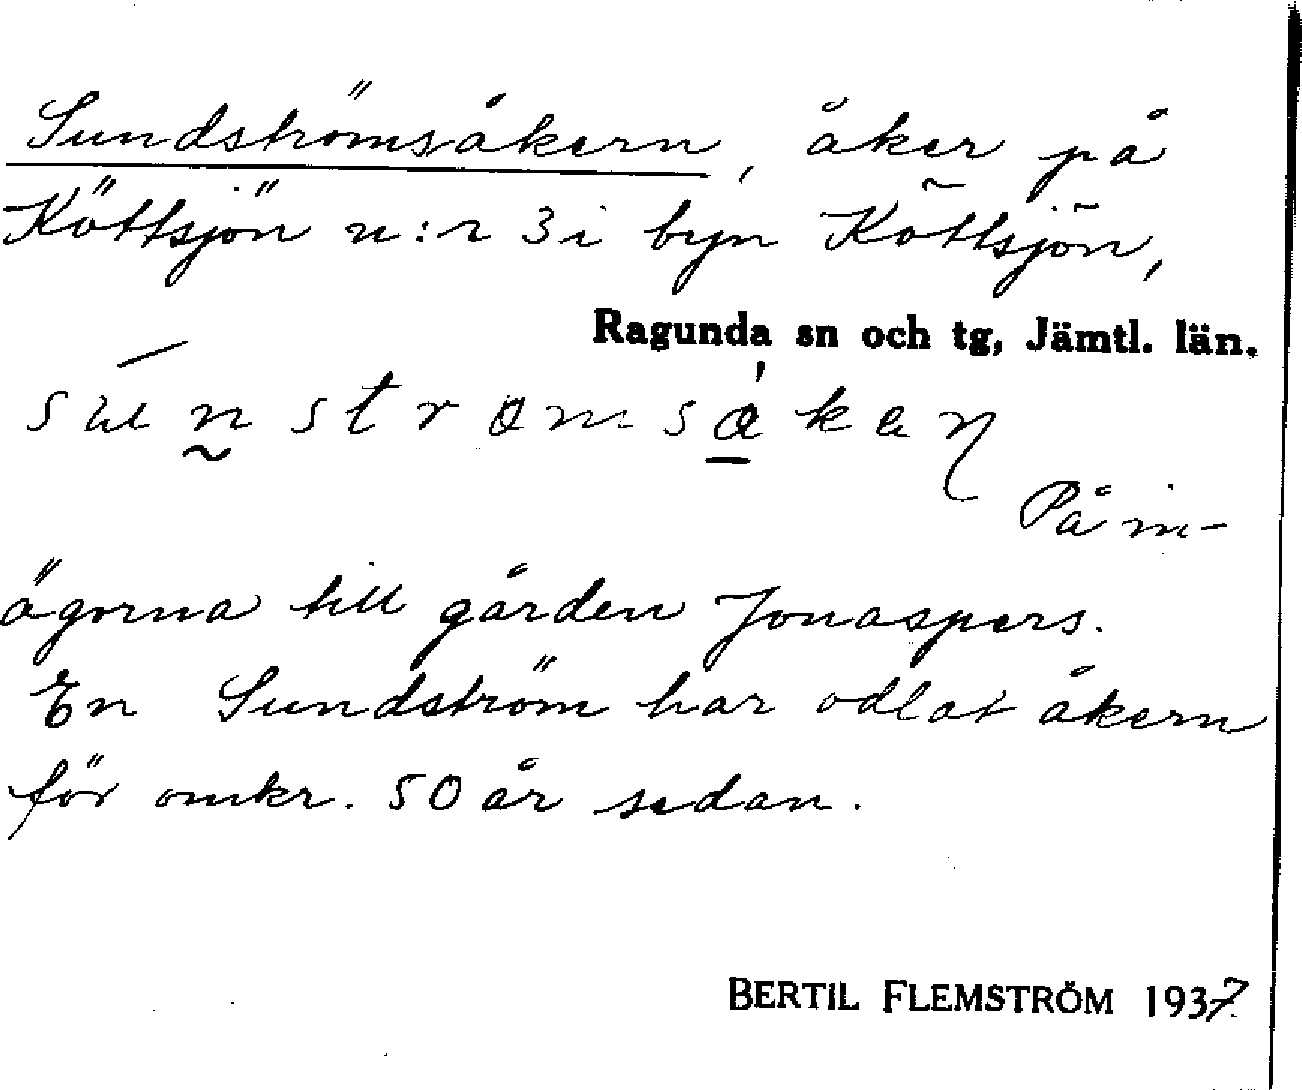 Sundströmsåkern, åker på
Köttsjön n:r 3 i byn Köttsjön,
Ragunda sn och tg, Jämtl. län.
På in-
ägorna till gården Jonaspers.
En Sundström har odlat åkern
för omkr. 50 år sedan.
BERTIL FLEMSTRÖM 1937